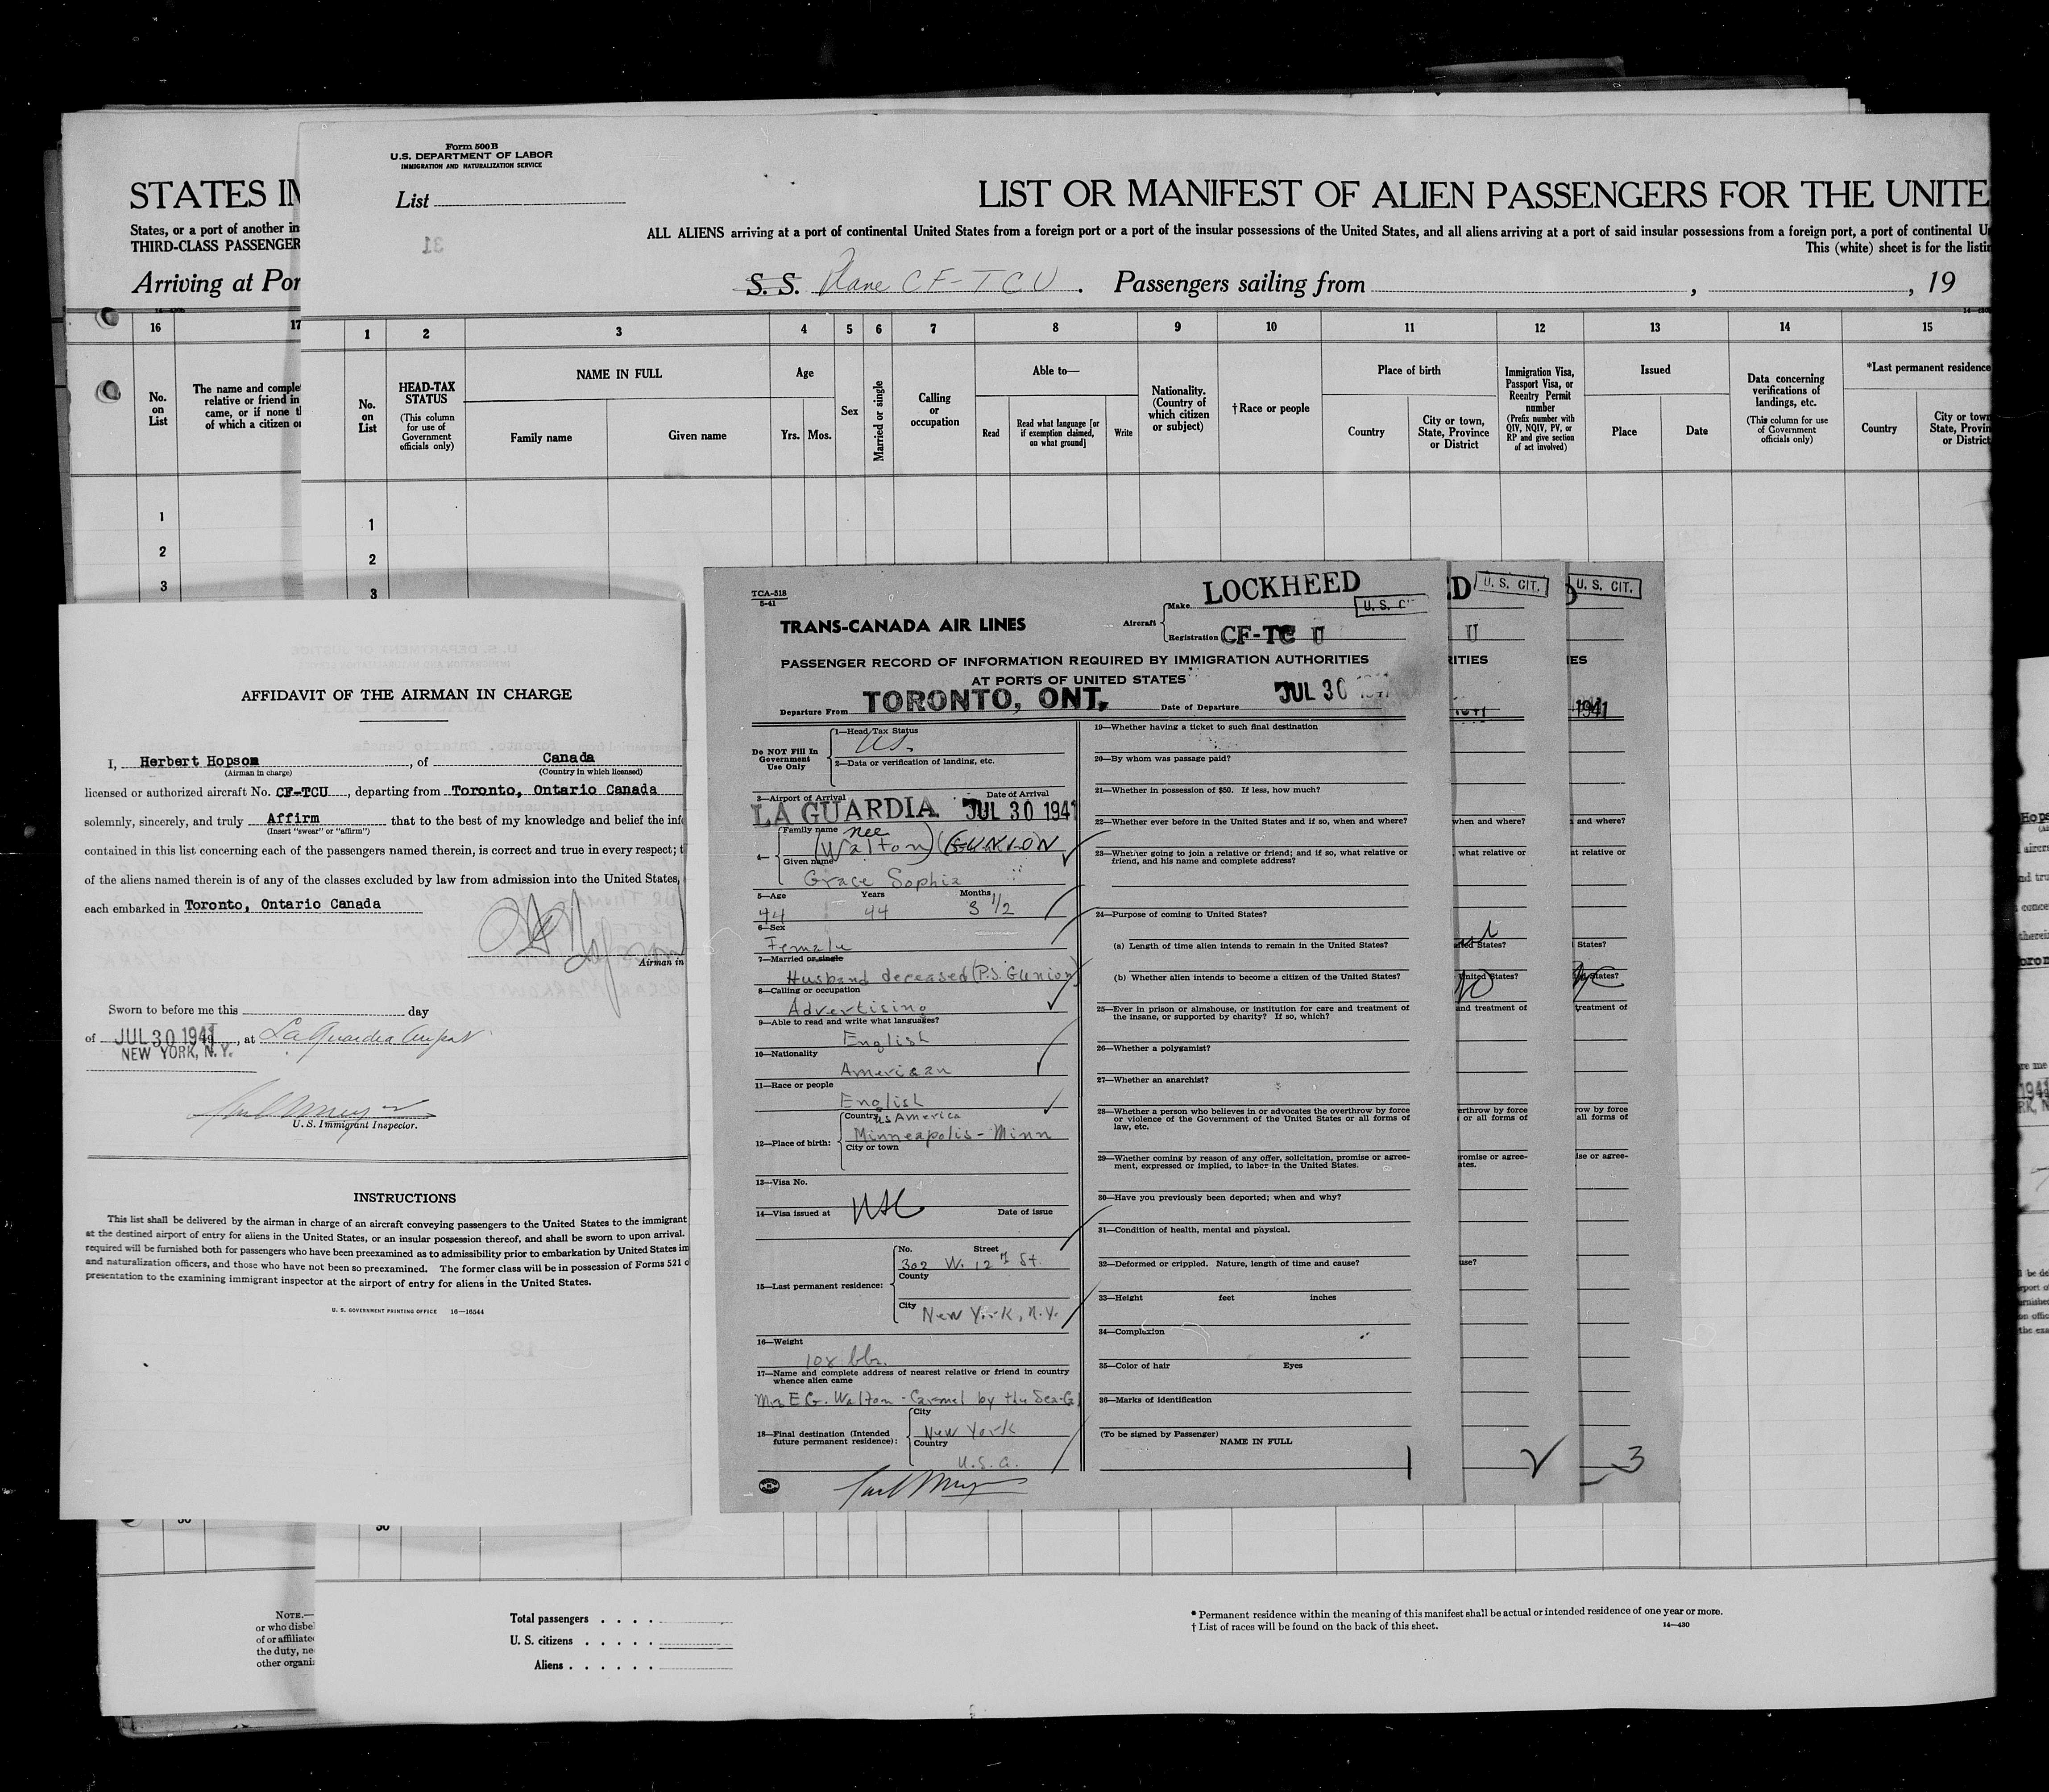 STATES IM
States, or a port of another in
THIRD-CLASS PASSENGER
Arriving at Por
16
17
No.
on
List
The name and comple
relative or friend in
came, or if none
of which a citizen o
1
2
3
Form 500 B
U.S. DEPARTMENT OF LABOR
IMMIGRATION AND NATURALIZATION SERVICE
List
31
LIST OR MANIFEST OF ALIEN PASSENGERS FOR THE UNITE
ALL ALIENS arriving at a port of continental United States from a foreign port or a port of the insular possessions of the United States, and all aliens arriving at a port of said insular possessions from a foreign port, a port of continental U
This (white) sheet is for the listin
S. S. Plane CF-TCU. Passengers sailing from , , 19
1 2 3 4 5 6 7 8 9 10 11 12 13 14 15
No.
on
List
HEAD-TAX
STATUS
(This column
for use of
Government
officials only)
NAME IN FULL
Family name
Given name
Age
Yrs. Mos.
Sex
Married or single
Calling
or
occupation
Able to—
Read
Read what language [or
if exemption claimed,
on what ground]
Write
Nationality.
(Country of
which citizen
or subject)
†Race or people
Place of birth
Country
City or town,
State, Province
or District
Immigration Visa,
Passport Visa, or
Reentry Permit
number
(Prefix number with
QIV, NQIV, PV, or
RP and give section
of act involved)
Issued
Place
Date
Data concerning
verifications of
landings, etc.
(This column for use
of Government
officials only)
*Last permanent residence
Country
City or town
State, Provin
or District
1
2
3
AFFIDAVIT OF THE AIRMAN IN CHARGE
I, Herbert Hopson, of Canada
(Airman in charge) (Country in which licensed)
licensed or authorized aircraft No. CF-TCU, departing from Toronto, Ontario Canada
solemnly, sincerely, and truly Affirm that to the best of my knowledge and belief the inf
(Insert "swear" or "affirm")
contained in this list concerning each of the passengers named therein, is correct and true in every respect; t
of the aliens named therein is of any of the classes excluded by law from admission into the United States,
each embarked in Toronto, Ontario Canada
Airman in
Sworn to before me this day
of JUL 30 1941, at La Guardia Airport
NEW YORK, N.Y.
U. S. Immigrant Inspector.
INSTRUCTIONS
This list shall be delivered by the airman in charge of an aircraft conveying passengers to the United States to the immigrant
at the destined airport of entry for aliens in the United States, or an insular possession thereof, and shall be sworn to upon arrival.
required will be furnished both for passengers who have been preexamined as to admissibility prior to embarkation by United States im
and naturalization officers, and those who have not been so preexamined. The former class will be in possession of Forms 521 o
presentation to the examining immigrant inspector at the airport of entry for aliens in the United States.
U. S. GOVERNMENT PRINTING OFFICE 16—16544
TCA-518
5-41
TRANS-CANADA AIR LINES
Aircraft
Make LOCKHEED
U. S. C
Registration CF-TC U
PASSENGER RECORD OF INFORMATION REQUIRED BY IMMIGRATION AUTHORITIES
AT PORTS OF UNITED STATES
Departure From TORONTO, ONT. Date of Departure JUL 30 1941
Do NOT Fill In
Government
Use Only
1—Head Tax Status
U.S.
2—Data or verification of landing, etc.
3—Airport of Arrival Date of Arrival
LA GUARDIA JUL 30 1941
4— Family name nee
(Walton) (GUNION
Given name
Grace Sophia
5—Age Years Months
44 44 3 1/2
6—Sex
Female
7—Married or single
Husband deceased (P.S. Gunion)
8—Calling or occupation
Advertising
9—Able to read and write what languages?
English
10—Nationality
American
11—Race or people
English
12—Place of birth:
Country US America
Minneapolis - Minn
City or town
13—Visa No.
14—Visa issued at Date of issue
15—Last permanent residence:
No. Street
302 W. 12th St.
County
City New York, N.Y.
16—Weight
108 lbs.
17—Name and complete address of nearest relative or friend in country
whence alien came
E.G. Walton - Carmel by the Sea-
18—Final destination (Intended
future permanent residence):
City
New York
Country
U.S.A.
19—Whether having a ticket to such final destination
20—By whom was passage paid?
21—Whether in possession of $50. If less, how much?
22—Whether ever before in the United States and if so, when and where?
23—Whether going to join a relative or friend; and if so, what relative or
friend, and his name and complete address?
24—Purpose of coming to United States?
(a) Length of time alien intends to remain in the United States?
(b) Whether alien intends to become a citizen of the United States?
25—Ever in prison or almshouse, or institution for care and treatment of
the insane, or supported by charity? If so, which?
26—Whether a polygamist?
27—Whether an anarchist?
28—Whether a person who believes in or advocates the overthrow by force
or violence of the Government of the United States or all forms of
law, etc.
29—Whether coming by reason of any offer, solicitation, promise or agree-
ment, expressed or implied, to labor in the United States.
30—Have you previously been deported; when and why?
31—Condition of health, mental and physical.
32—Deformed or crippled. Nature, length of time and cause?
33—Height feet inches
34—Complexion
35—Color of hair Eyes
36—Marks of identification
(To be signed by Passenger)
NAME IN FULL
1
D U. S. CIT.
U
RITIES
when and where?
what relative or
United States?
United States?
and treatment of
erthrow by force
or all forms of
romise or agree-
ates.
use?
U. S. CIT.
IES
1941
and where?
at relative or
States?
States?
treatment of
row by force
all forms of
ise or agree-
3
30
30
NOTE.—
or who disbe
of or affiliate
the duty, ne
other organi
Total passengers . . . .
U. S. citizens . . . . .
Aliens . . . . . .
* Permanent residence within the meaning of this manifest shall be actual or intended residence of one year or more.
† List of races will be found on the back of this sheet.
14—430